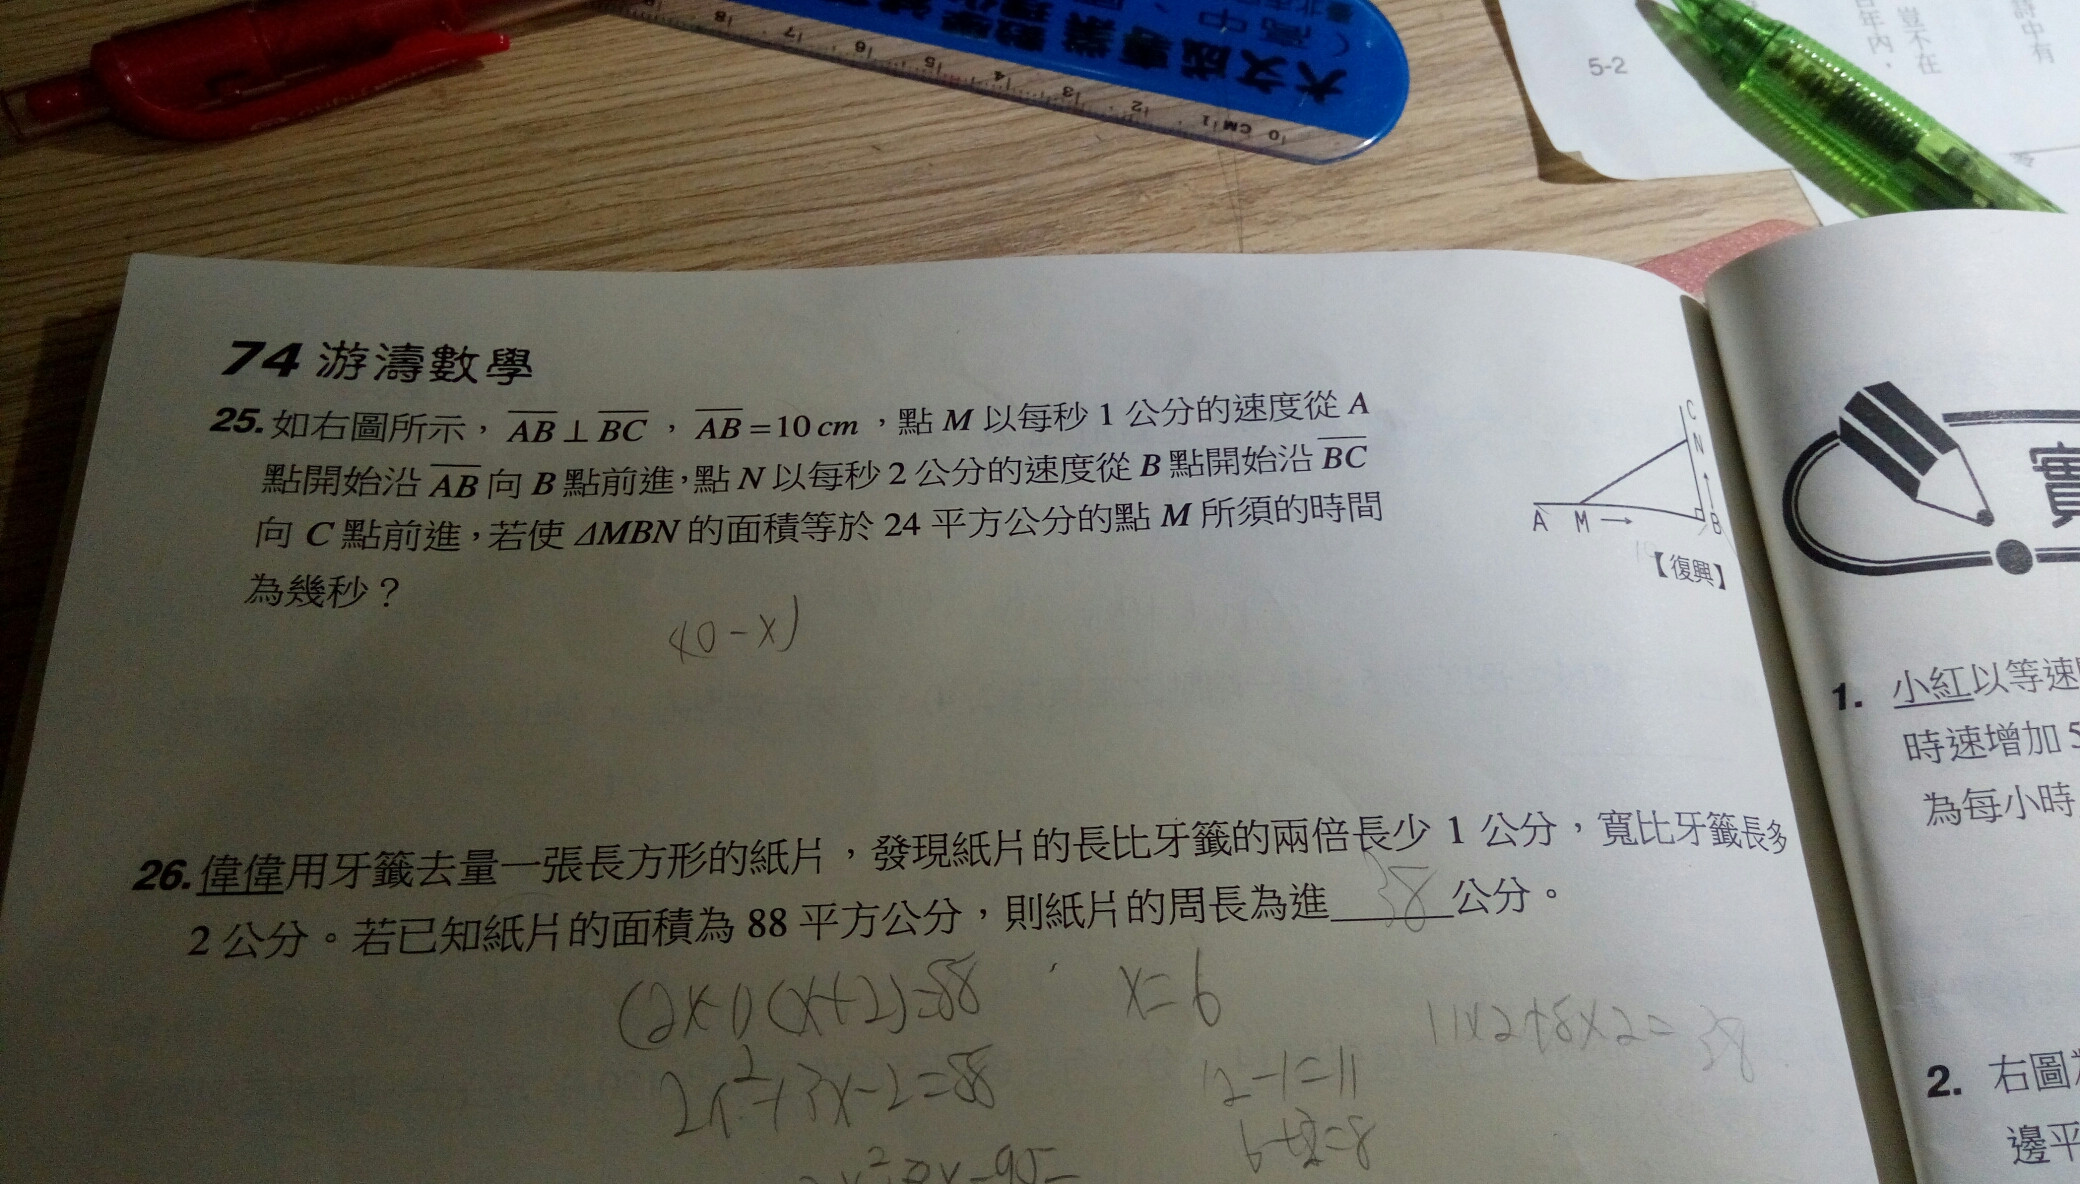 大文成專業數學
5-2
豈不在
百年內，
詩中有
74 游濤數學
25. 如右圖所示，AB⊥BC，AB=10cm，點 M 以每秒 1 公分的速度從 A
點開始沿 AB 向 B 點前進，點 N 以每秒 2 公分的速度從 B 點開始沿 BC
向 C 點前進，若使 ΔMBN 的面積等於 24 平方公分的點 M 所須的時間
為幾秒？
C
N
A M → B
【復興】
26. 偉偉用牙籤去量一張長方形的紙片，發現紙片的長比牙籤的兩倍長少 1 公分，寬比牙籤長多
2 公分。若已知紙片的面積為 88 平方公分，則紙片的周長為進 38 公分。
(2x-1)(x+2)=88
x=6
11x2+8x2=38
2x²+3x-2=88
12-1=11
1. 小紅以等速
時速增加 5
為每小時
2. 右圖
邊平